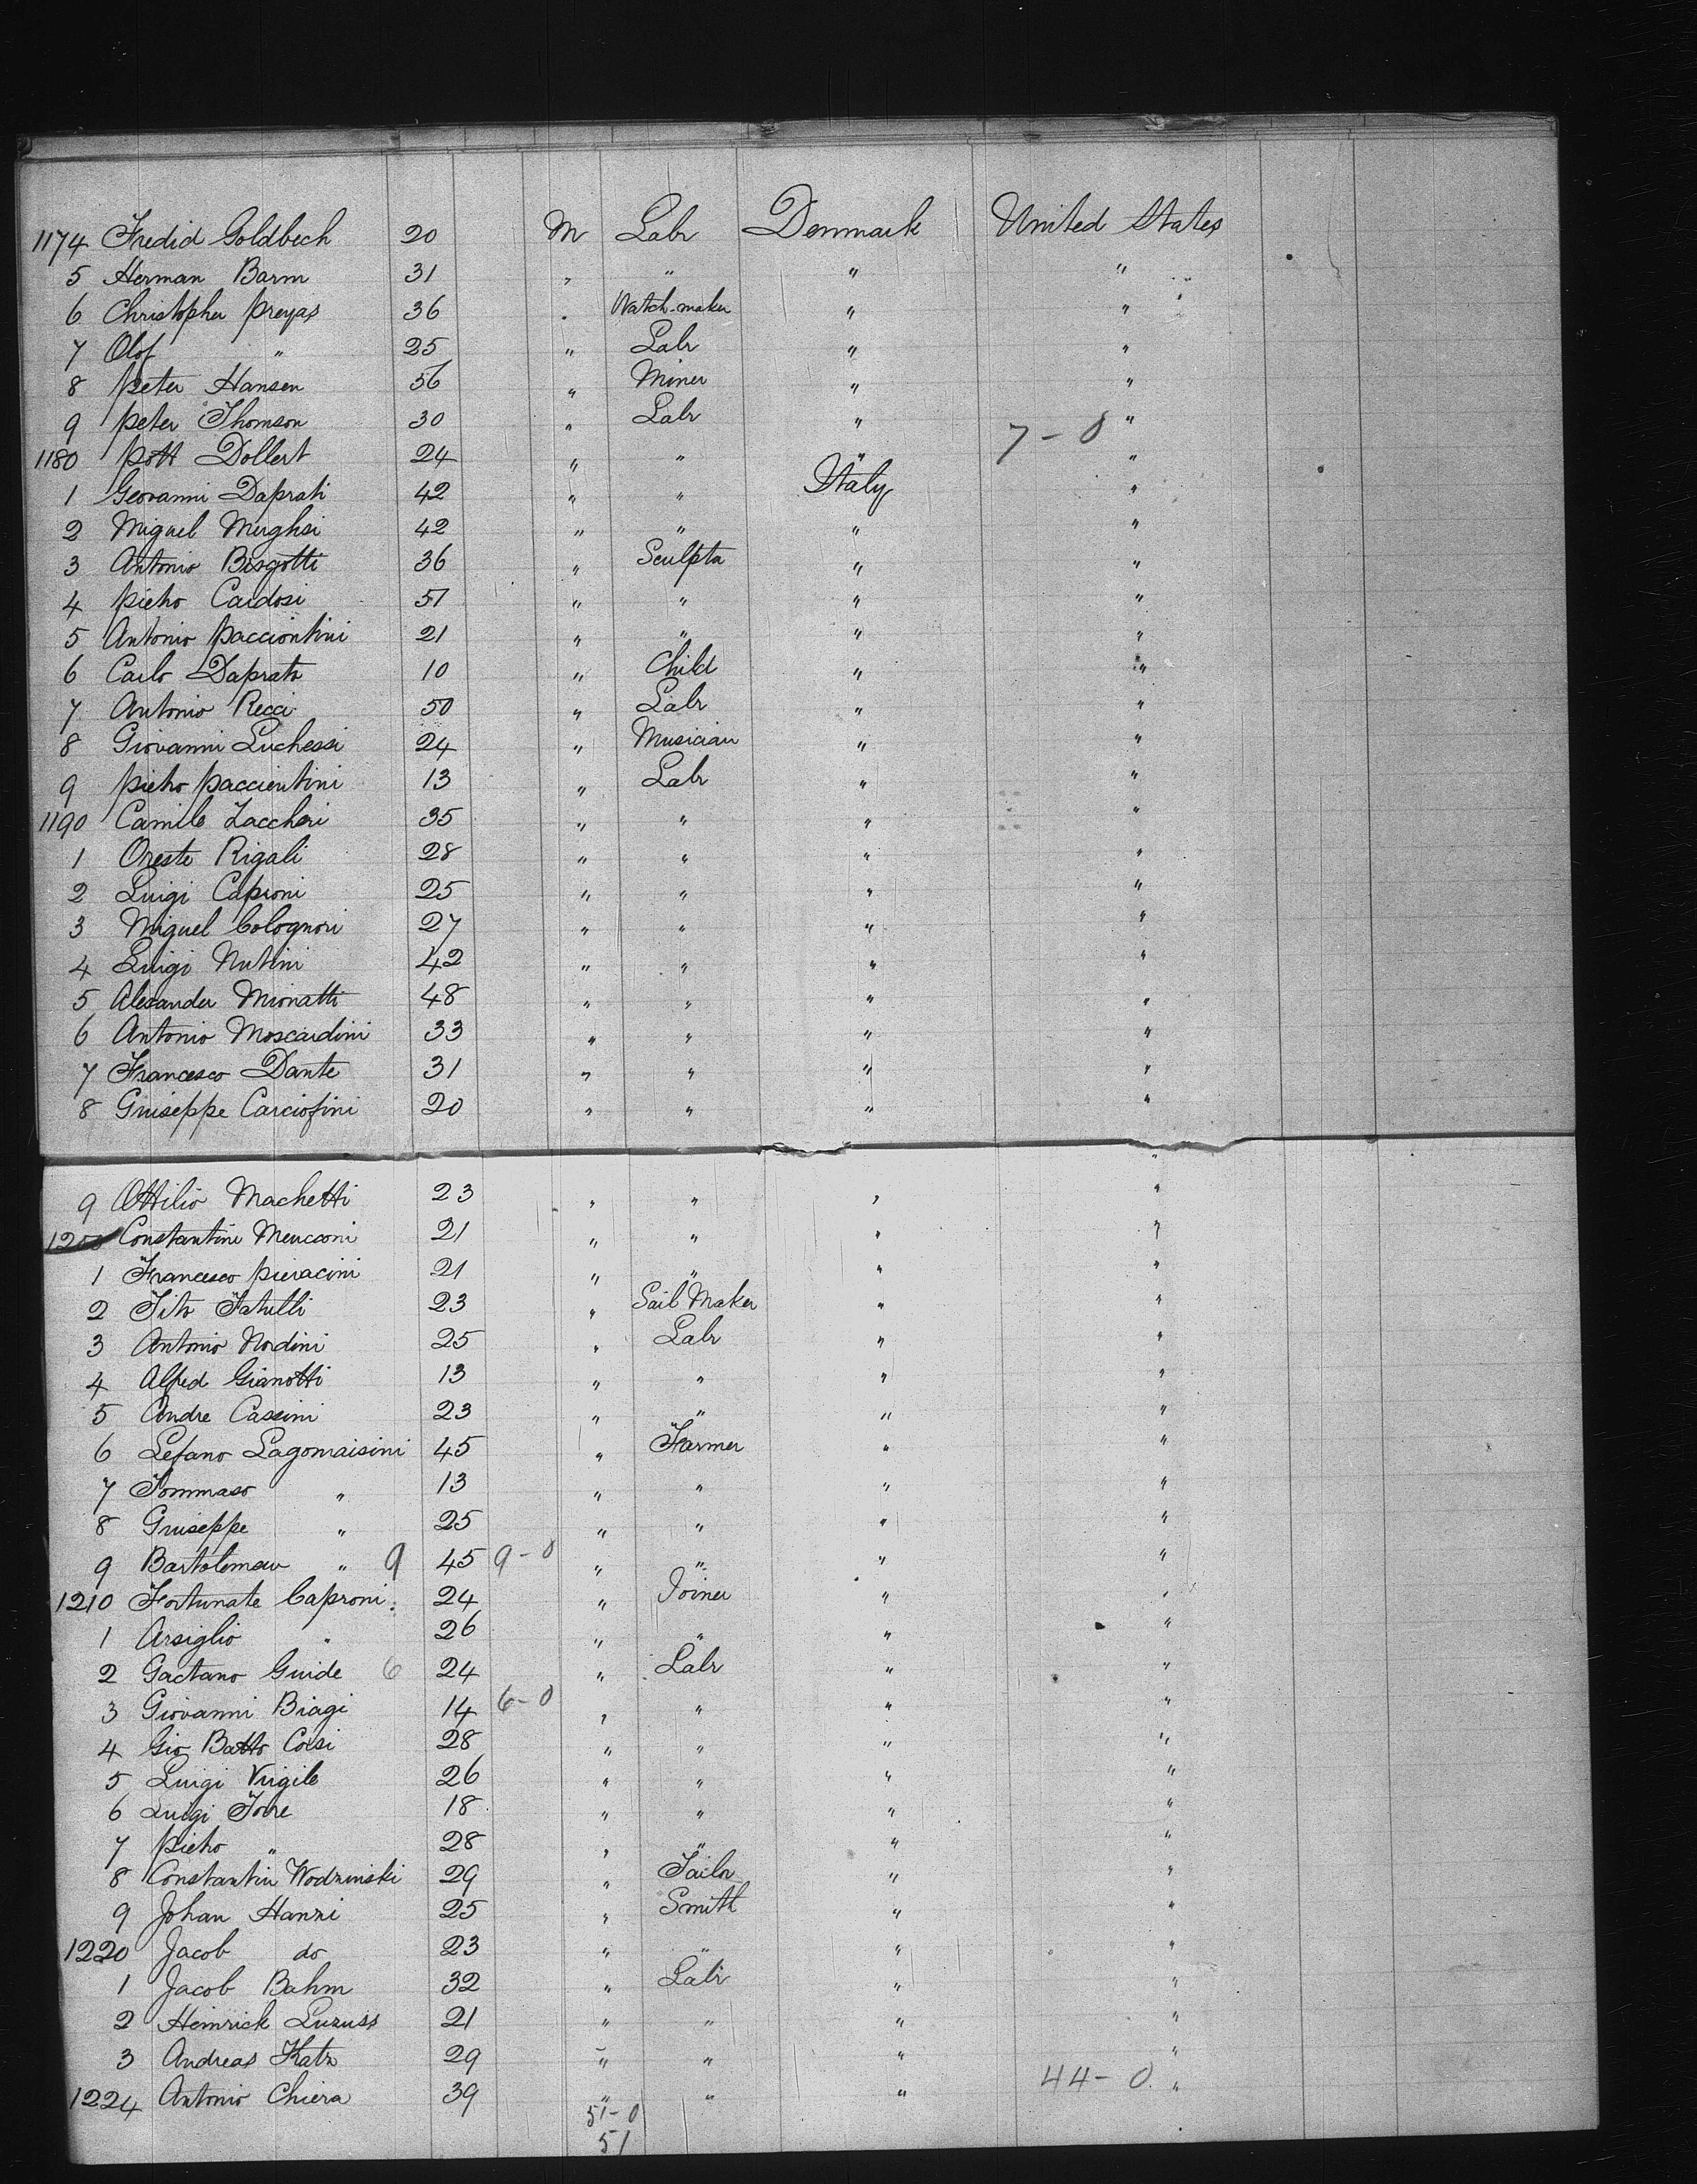 1174 Fredid Goldbech 20 M Labr Denmark United States
5 Herman Barm 31 " " " "
6 Christopher Preyas 36 " Watch-maker " "
7 Olof " 25 " Labr " "
8 Peter Hansen 56 " Miner " "
9 Peter Thomson 30 " Labr " 7-0 "
1180 Pott Dollert 24 " " " "
1 Geovanni Daprati 42 " " Italy "
2 Miguel Merghsi 42 " " " "
3 Antonio Bisgotti 36 " Sculpta " "
4 Pietro Cardosi 51 " " " "
5 Antonio Pacciontini 21 " " " "
6 Carlo Daprato 10 " Child " "
7 Antonio Recci 50 " Labr " "
8 Giovanni Luchessi 24 " Musician " "
9 Pietro Paccientini 13 " Labr " "
1190 Camilo Zaccheri 35 " " " "
1 Oreste Rigali 28 " " " "
2 Luigi Caproni 25 " " " "
3 Miguel Colognori 27 " " " "
4 Luigi Nutini 42 " " " "
5 Alexander Mionatti 48 " " " "
6 Antonio Moscardini 33 " " " "
7 Francesco Dante 31 " " " "
8 Giuseppe Carciofini 20 " " " "
"
9 Ottilio Machetti 23 " " " "
1200 Constantine Mencconi 21 " " " "
1 Francesco Pieracini 21 " " " "
2 Tito Fatulli 23 " Sail Maker " "
3 Antonio Nordini 25 " Labr " "
4 Alfred Gianotti 13 " " " "
5 Andre Cassini 23 " " " "
6 Lefano Lagomaisini 45 " Farmer " "
7 Tommaso " 13 " " " "
8 Giuseppe " 25 " " " "
9 Bartolomew " 9 45 9-0 " " " "
1210 Fortunate Caproni 24 " Joiner " "
1 Arsiglio " 26 " " " "
2 Gaetano Guide 6 24 " Labr " "
3 Giovanni Biagi 14 6-0 " " " "
4 Gio Batto Corsi 28 " " " "
5 Luigi Virgile 26 " " " "
6 Luigi Torre 18 " " " "
7 Pietro " 28 " " " "
8 Constantin Wodzinski 29 " Tailor " "
9 Johan Hanzi 25 " Smith " "
1220 Jacob do 23 " " " "
1 Jacob Bahm 32 " Labr " "
2 Heinrick Luzuss 21 " " " "
3 Andreas Katz 29 " " " "
1224 Antonio Chiera 39 " " " 44-0 "
51-0
51